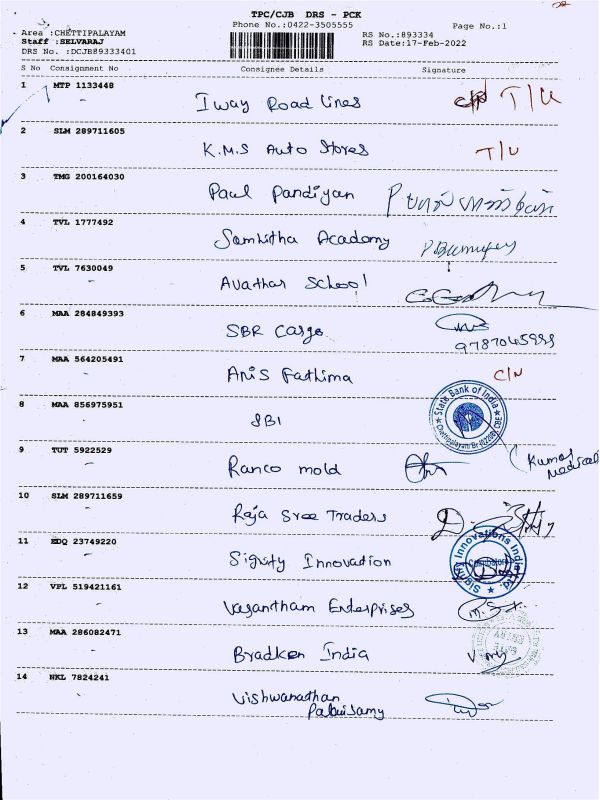 TPC/CJB DRS - PCK
Phone No.:0422-3505555
Page No.:1
Area :CHETTIPALAYAM
Staff :SELVARAJ
DRS No. :DCJB89333401
RS No.:893334
RS Date:17-Feb-2022
S No Consignment No Consignee Details Signature
1 MTP 1133448 Iway Road Lines T/U
2 SLM 289711605 K.M.S Auto Stores T/U
3 TMG 200164030 Paul Pandiyan
4 TVL 1777492 Samhitha Academy
5 TVL 7630049 Avathar School
6 MAA 284849393 SBR Cargo
9787045988
7 MAA 564205491 Anis Fathima C/N
8 MAA 856975951 SBI State Bank of India
9 TUT 5922529 Ranco mold Kumar Medical
10 SLM 289711659 Raja Sree Traders
11 EDQ 23749220 Signity Innovation
12 VPL 519421161 Vasantham Enterprises
13 MAA 286082471 Bradken India
14 NKL 7824241 Vishwanathan
Palanisamy